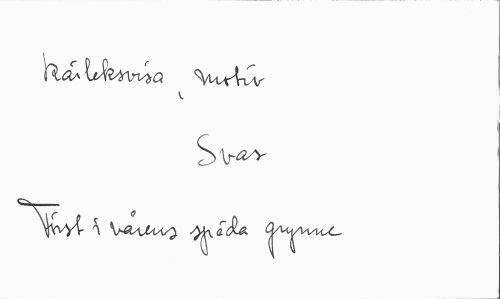 Kärleksvisa, motiv
Svar
Först i vårens späda grynne